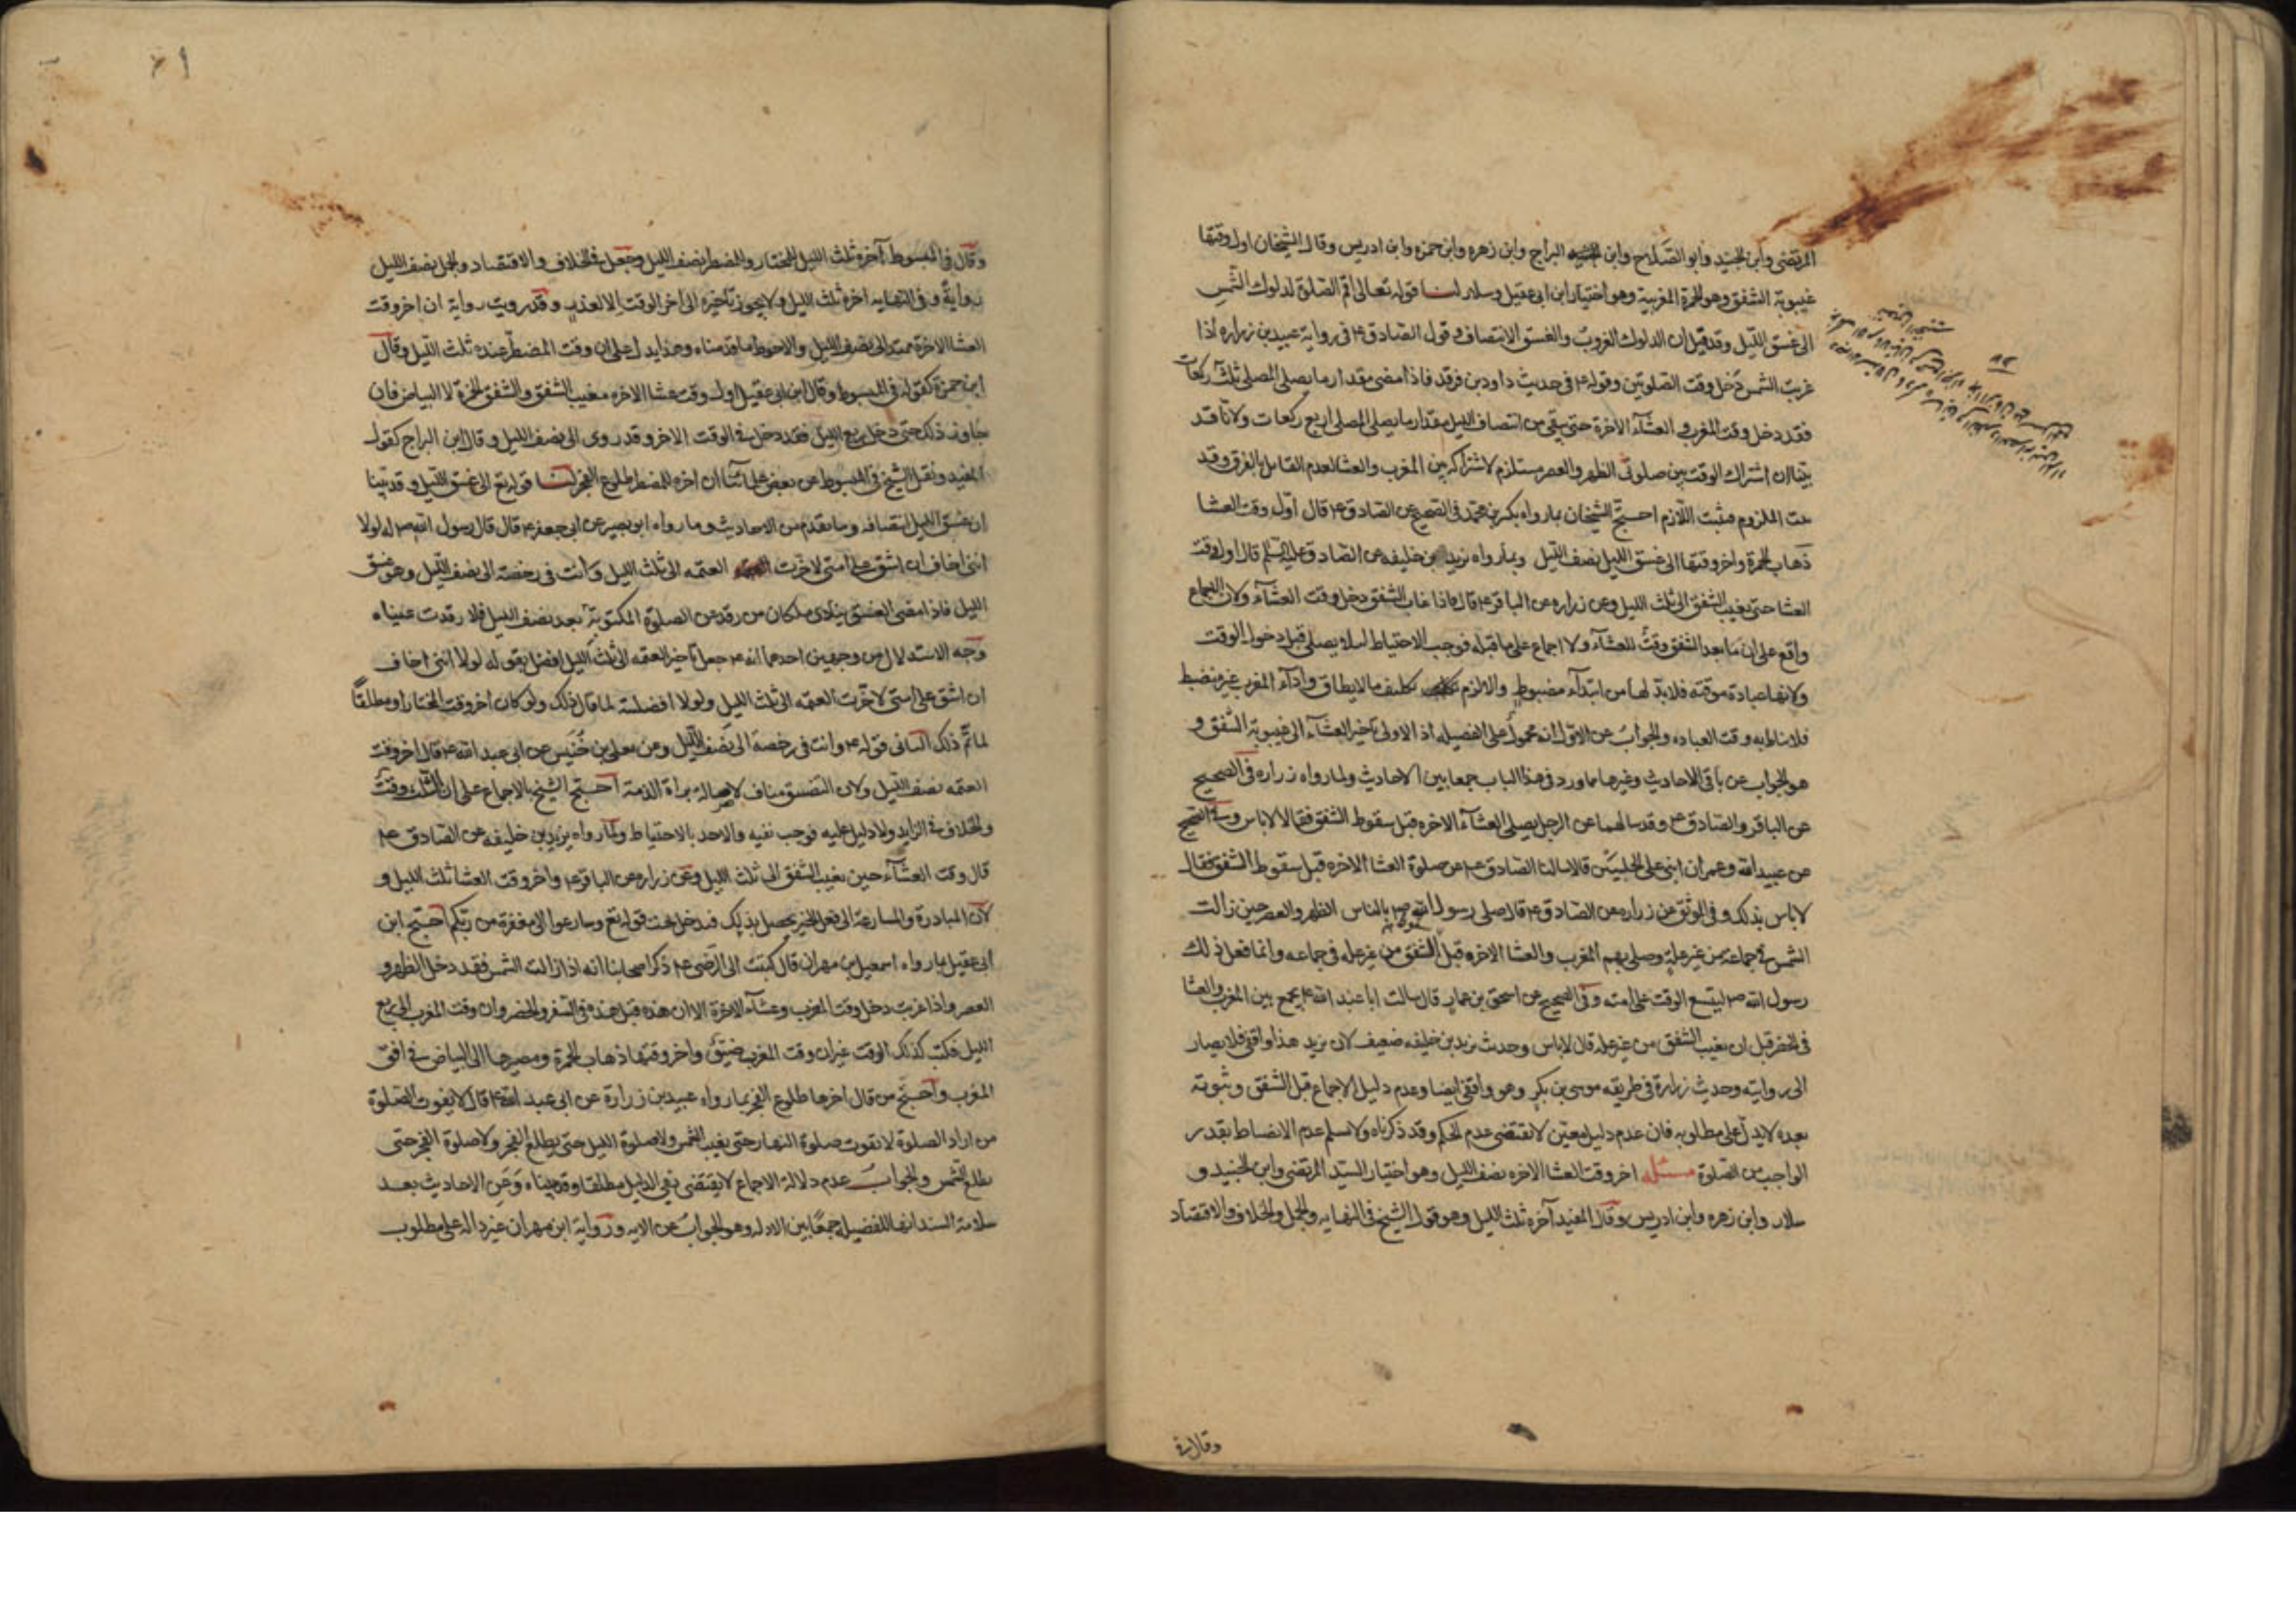 المرتضى وابن الجنيد وابو الصلاح وابن البراج وابن زهره وابن حمزه وابن ادريس وقال الشيخان اول وقتها
غيبوبة الشفق وهو الحمرة المغربية وهو اختيار ابن ابى عقيل وسلار لنا قوله تعالى اقم الصلوة لدلوك الشمس
الى غسق الليل وقد قيل ان الدلوك الغروب والغسق الانتصاف وقول الصادق ع فى رواية عبيد بن زراره اذا
غربت الشمس دخل وقت الصلوتين وقوله ع فى حديث داود بن فرقد فاذا مضى مقدار ما يصلى المصلى ثلث ركعات
فقد دخل وقت المغرب والعشآء الآخرة حتى يبقى من انتصاف الليل مقدار ما يصلى المصلى اربع ركعات ولانا قد
بينا ان اشتراك الوقت بين صلوتى الظهر والعصر مستلزم لاشتراكه بين المغرب والعشا لعدم القائل بالفرق وقد
ثبت الملزوم فثبت اللازم احتج الشيخان بما رواه بكر بن محمد فى الصحيح عن الصادق ع قال اول وقت العشا
ذهاب الحمرة واخر وقتها الى غسق الليل نصف الليل وبما رواه يزيد بن خليفه عن الصادق عليه السلم قال اول وقت
العشا حتى يغيب الشفق الى ثلث الليل وعن زراره عن الباقر ع قال فاذا غاب الشفق دخل وقت العشآء ولان الاجماع
واقع على ان ما بعد الشفق وقت للعشآء ولا اجماع على ما قبله فوجب الاحتياط لئلا يصلى قبل دخول الوقت
ولانها عبادة موقته فلا بد لها من ابتدآء مضبوط والا لزم تكليف ما لا يطاق وادآء المغرب غير منضبط
فلا يناط به وقت العباده والجواب عن الاول انه محمول على الفضيله اذ الاولى تاخير العشآء الى غيبوبة الشفق و
هو الجواب عن باقى الاحاديث وغيرها مما ورد فى هذا الباب جمعا بين الاحاديث ولما رواه زراره فى الصحيح
عن الباقر والصادق ع وقد سالهما عن الرجل يصلى العشآء الاخره قبل سقوط الشفق فقالا لا باس وفى الصحيح
عن عبيد الله وعمران ابنى على الحلبيين قالا سالنا الصادق ع عن صلوة العشا الاخره قبل سقوط الشفق فقال
لا باس بذلك وفى الموثق عن زراره عن الصادق ع قال صلى رسول الله ص بالناس الظهر والعصر حين زالت
الشمس فى جماعة من غير علة وصلى بهم المغرب والعشا الاخره قبل الشفق من غير عله فى جماعه وانما فعل ذلك
رسول الله ص ليتسع الوقت على امته وفى الصحيح عن اسحق بن عمار قال سالت ابا عبد الله ع يجمع بين المغرب والعشا
فى الحضر قبل ان يغيب الشفق من غير عله قال لا باس وحديث يزيد بن خليفه ضعيف لان يزيد هذا واقفى فلا يصار
الى روايته وحديث زرارة فى طريقه موسى بن بكر وهو واقفى ايضا وعدم دليل الاجماع قبل الشفق وثبوته
بعده لا يدل على مطلوبه فان عدم دليل معين لا يقتضى عدم الحكم وقد ذكرناه ولا نسلم عدم الانضباط بقدر
الواجب من الصلوة مسئله اخر وقت العشا الاخره نصف الليل وهو اختيار السيد المرتضى وابن الجنيد و
سلار وابن زهره وابن ادريس وقال المفيد آخره ثلث الليل وهو قول الشيخ فى النهايه والجمل والخلاف والاقتصاد
وقال فى
وقال فى المبسوط آخره ثلث الليل للمختار وللمضطر نصف الليل وجعل فى الخلاف والاقتصاد والجمل نصف الليل
رواية وفى النهايه اخره ثلث الليل ولا يجوز تاخيره الى اخر الوقت الا لعذر وقد رويت رواية ان اخر وقت
العشا الاخرة ممتد الى نصف الليل والاحوط ما قدمناه وهذا يدل على ان وقت المضطر عنده ثلث الليل وقال
ابن حمزة كقوله فى المبسوط وقال ابن ابى عقيل اول وقت عشا الاخره مغيب الشفق والشفق الحمرة لا البياض فان
جاوز ذلك حتى دخل ربع الليل فقد دخل فى الوقت الاخر وقد روى الى نصف الليل وقال ابن البراج كقول
المفيد ونقل الشيخ فى المبسوط عن بعض علمائنا ان اخره للمضطر طلوع الفجر لنا قوله تع الى غسق الليل وقد بينا
ان غسق الليل انتصافه وما تقدم من الاحاديث وما رواه ابو بصير عن ابى جعفر ع قال قال رسول الله ص لولا
اننى اخاف ان اشق على امتى لاخرت العتمه الى ثلث الليل وانت فى رخصة الى نصف الليل وهو غسق
الليل فاذا مضى الغسق ينادى ملكان من رقد عن الصلوة المكتوبة بعد نصف الليل فلا رقدت عيناه
وجه الاستدلال من وجهين احدهما انه ع جعل تاخير العتمه الى ثلث الليل افضل بقوله لولا اننى اخاف
ان اشق على امتى لاخرت العتمه الى ثلث الليل ولولا افضليته لما قال ذلك ولو كان اخر وقت المختار او مطلقًا
لما تم ذلك الثانى قوله ع وانت فى رخصة الى نصف الليل وعن معلى بن خنيس عن ابى عبد الله ع قال اخر وقت
العتمه نصف الليل ولان التضيق مناف لاصالة براة الذمة احتج الشيخ بالاجماع على ان الثلث وقت
والخلاف فى الزايد ولا دليل عليه فوجب نفيه والاخذ بالاحتياط ولما رواه يزيد بن خليفه عن الصادق ع
قال وقت العشآء حين يغيب الشفق الى ثلث الليل وعن زراره عن الباقر ع واخر وقت العشا ثلث الليل و
لان المبادرة والمسارعة الى فعل الخير يحصل بذلك فيدخل تحت قوله تع وسارعوا الى مغفرة من ربكم احتج ابن
ابى عقيل بما رواه اسمعيل بن مهران قال كتبت الى الرضى ع ذكر اصحابنا انه اذا زالت الشمس فقد دخل الظهر و
العصر واذا غربت دخل وقت المغرب وعشآء الاخرة الا ان هذه قبل هذه فى السفر والحضر وان وقت المغرب الى ربع
الليل فكتب كذلك الوقت غير ان وقت المغرب ضيق واخر وقتها ذهاب الحمرة ومصيرها الى البياض فى افق
المغرب واحتج من قال اخرها طلوع الفجر بما رواه عبيد بن زرارة عن ابى عبد الله ع قال لا يفوت الصلوة
من اراد الصلوة لا تفوت صلوة النهار حتى يغيب الشمس ولا صلوة الليل حتى يطلع الفجر ولا صلوة الفجر حتى
يطلع الشمس والجواب عدم دلالة الاجماع لا يقتضى نفى الدليل مطلقا وقد بيناه وعن الاحاديث بعد
سلامة السند انها للفضيله جمعًا بين الادله وهو الجواب عن الايه ورواية ابن مهران غير داله على مطلوب